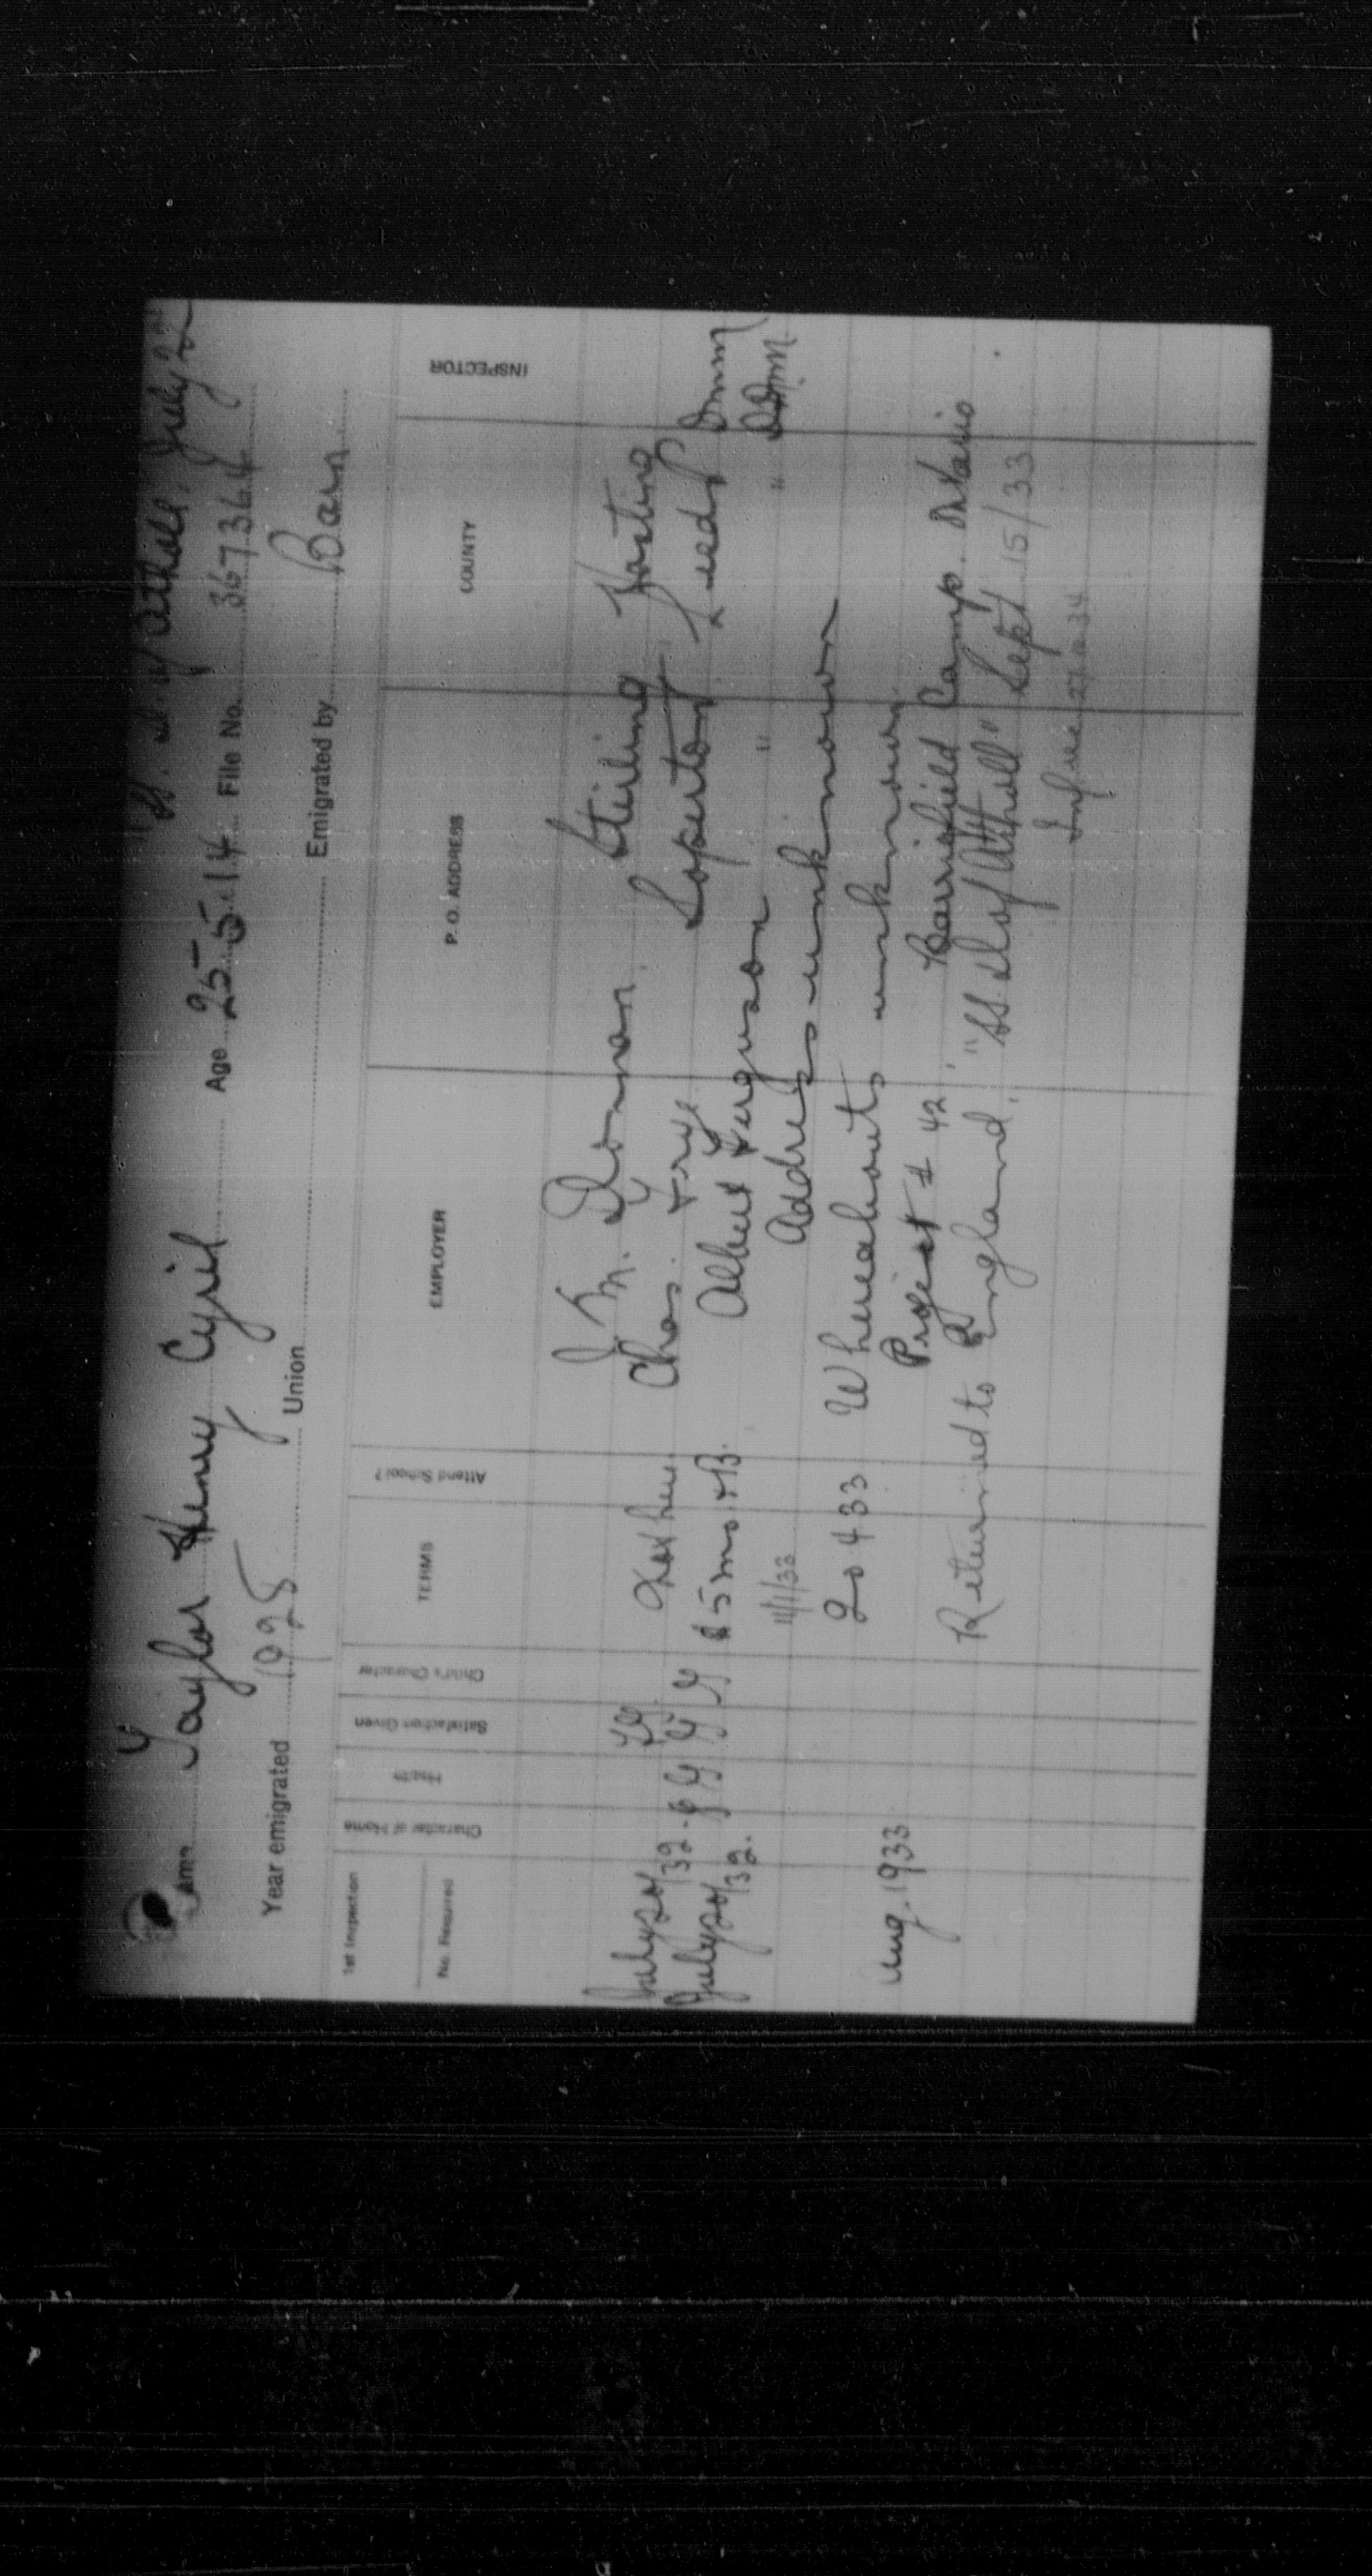 D. of Athole, July 22
Name Taylor Henry Cyril Age 25-5-14 File No. 367364
Year emigrated 1928 Union Emigrated by Barn
1st Inspection
No. Required
Character of Home
Health
Satisfaction Given
Child's Character
TERMS
Attend School?
EMPLOYER
P. O. ADDRESS
COUNTY
INSPECTOR
J. M. Sloman Stirling Hasting
July 20/32 - G G Not here Chas. Frye Soperton Leeds Dmm
July 20/32. G G G G $5 mo. & B. Albert Ferguson " " DDmm
11/1/33 Address unknown
20 4 33 Whereabouts unknown
Aug. 1933 Project # 42, Barriefield Camp. Ontario
Returned to England, "SS. D. of Athall" Sept 15/33